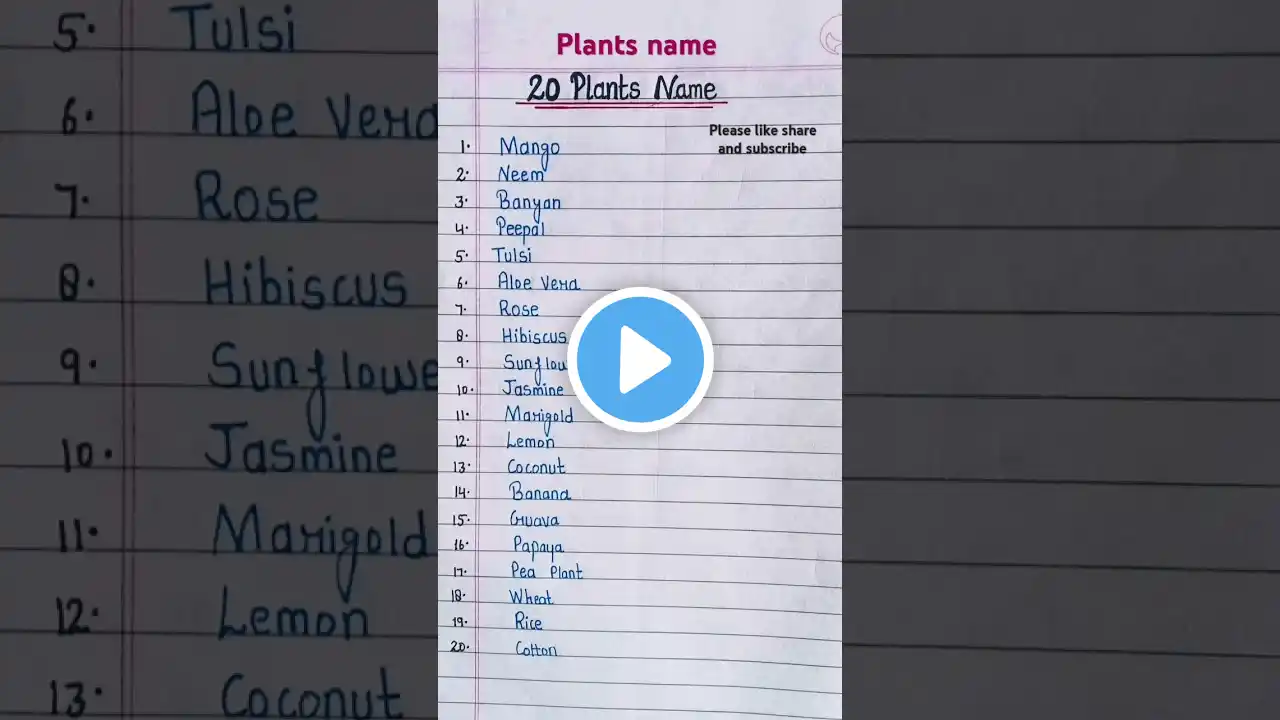 Plants name
20 Plants Name
Please like share
and subscribe
1. Mango
2. Neem
3. Banyan
4. Peepal
5. Tulsi
6. Aloe Vera
7. Rose
8. Hibiscus
9. Sunflow
10. Jasmine
11. Marigold
12. Lemon
13. Coconut
14. Banana
15. Guava
16. Papaya
17. Pea Plant
18. Wheat
19. Rice
20. Cotton
5. Tulsi
6. Aloe Vera
7. Rose
8. Hibiscus
9. Sunflowe
10. Jasmine
11. Marigold
12. Lemon
13. Coconut